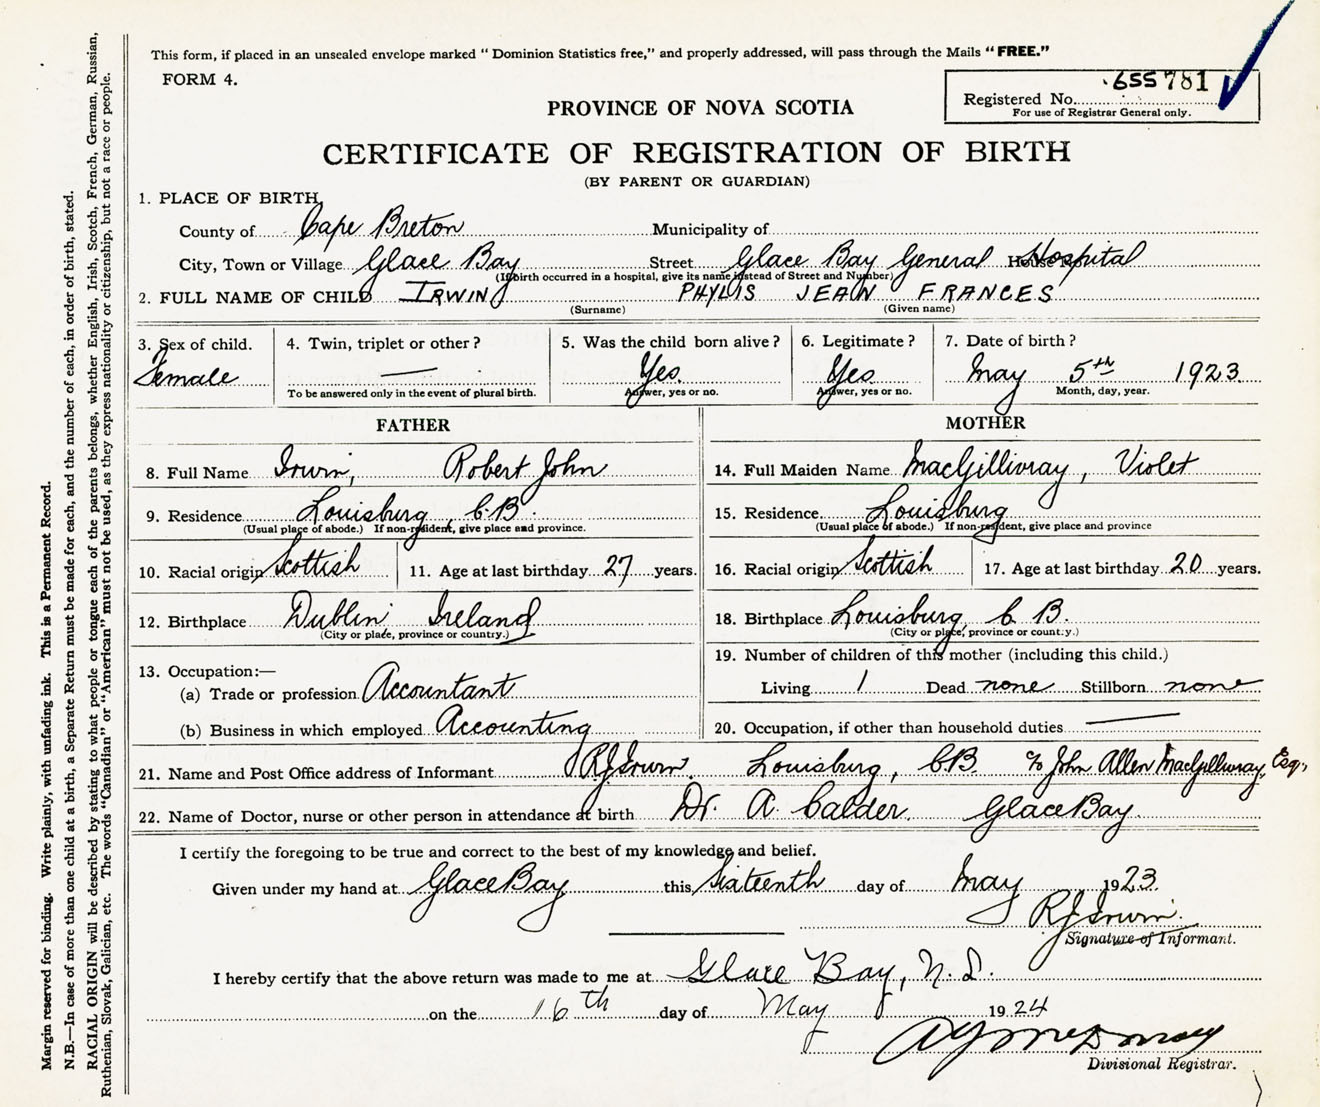 This form, if placed in an unsealed envelope marked "Dominion Statistics free," and properly addressed, will pass through the Mails "FREE."
FORM 4.
655781
Registered No.
For use of Registrar General only.
PROVINCE OF NOVA SCOTIA
CERTIFICATE OF REGISTRATION OF BIRTH
(BY PARENT OR GUARDIAN)
1. PLACE OF BIRTH
County of Cape Breton Municipality of
City, Town or Village Glace Bay Street Glace Bay General Hospital
(If birth occurred in a hospital, give its name instead of Street and Number)
2. FULL NAME OF CHILD IRWIN PHYLIS JEAN FRANCES
(Surname) (Given name)
3. Sex of child. 4. Twin, triplet or other? 5. Was the child born alive? 6. Legitimate? 7. Date of birth?
Female — Yes. Yes May 5th 1923.
To be answered only in the event of plural birth. Answer, yes or no. Answer, yes or no. Month, day, year.
FATHER
8. Full Name Irwin, Robert John
9. Residence Louisburg, C.B.
(Usual place of abode.) If non-resident, give place and province.
10. Racial origin Scottish 11. Age at last birthday 27 years.
12. Birthplace Dublin Ireland
(City or place, province or country.)
13. Occupation:—
(a) Trade or profession Accountant
(b) Business in which employed Accounting
MOTHER
14. Full Maiden Name MacGillivray, Violet
15. Residence Louisburg
(Usual place of abode.) If non-resident, give place and province
16. Racial origin Scottish 17. Age at last birthday 20 years.
18. Birthplace Louisburg, C B.
(City or place, province or country.)
19. Number of children of this mother (including this child.)
Living 1 Dead none Stillborn none
20. Occupation, if other than household duties —
21. Name and Post Office address of Informant RJ Irwin. Louisburg, C.B. c/o John Allen MacGillivray, Esq,
22. Name of Doctor, nurse or other person in attendance at birth Dr. A. Calder Glace Bay.
I certify the foregoing to be true and correct to the best of my knowledge and belief.
Given under my hand at Glace Bay this sixteenth day of May 1923.
RJ Irwin.
Signature of Informant.
I hereby certify that the above return was made to me at Glace Bay, N.S.
on the 16th day of May 1924
Divisional Registrar.
Margin reserved for binding. Write plainly, with unfading ink. This is a Permanent Record.
N.B.—In case of more than one child at a birth, a Separate Return must be made for each, and the number of each, in order of birth, stated.
RACIAL ORIGIN will be described by stating to what people or tongue each of the parents belongs, whether English, Irish, Scotch, French, German, Russian,
Ruthenian, Slovak, Galician, etc. The words "Canadian" or "American" must not be used, as they express nationality or citizenship, but not a race or people.